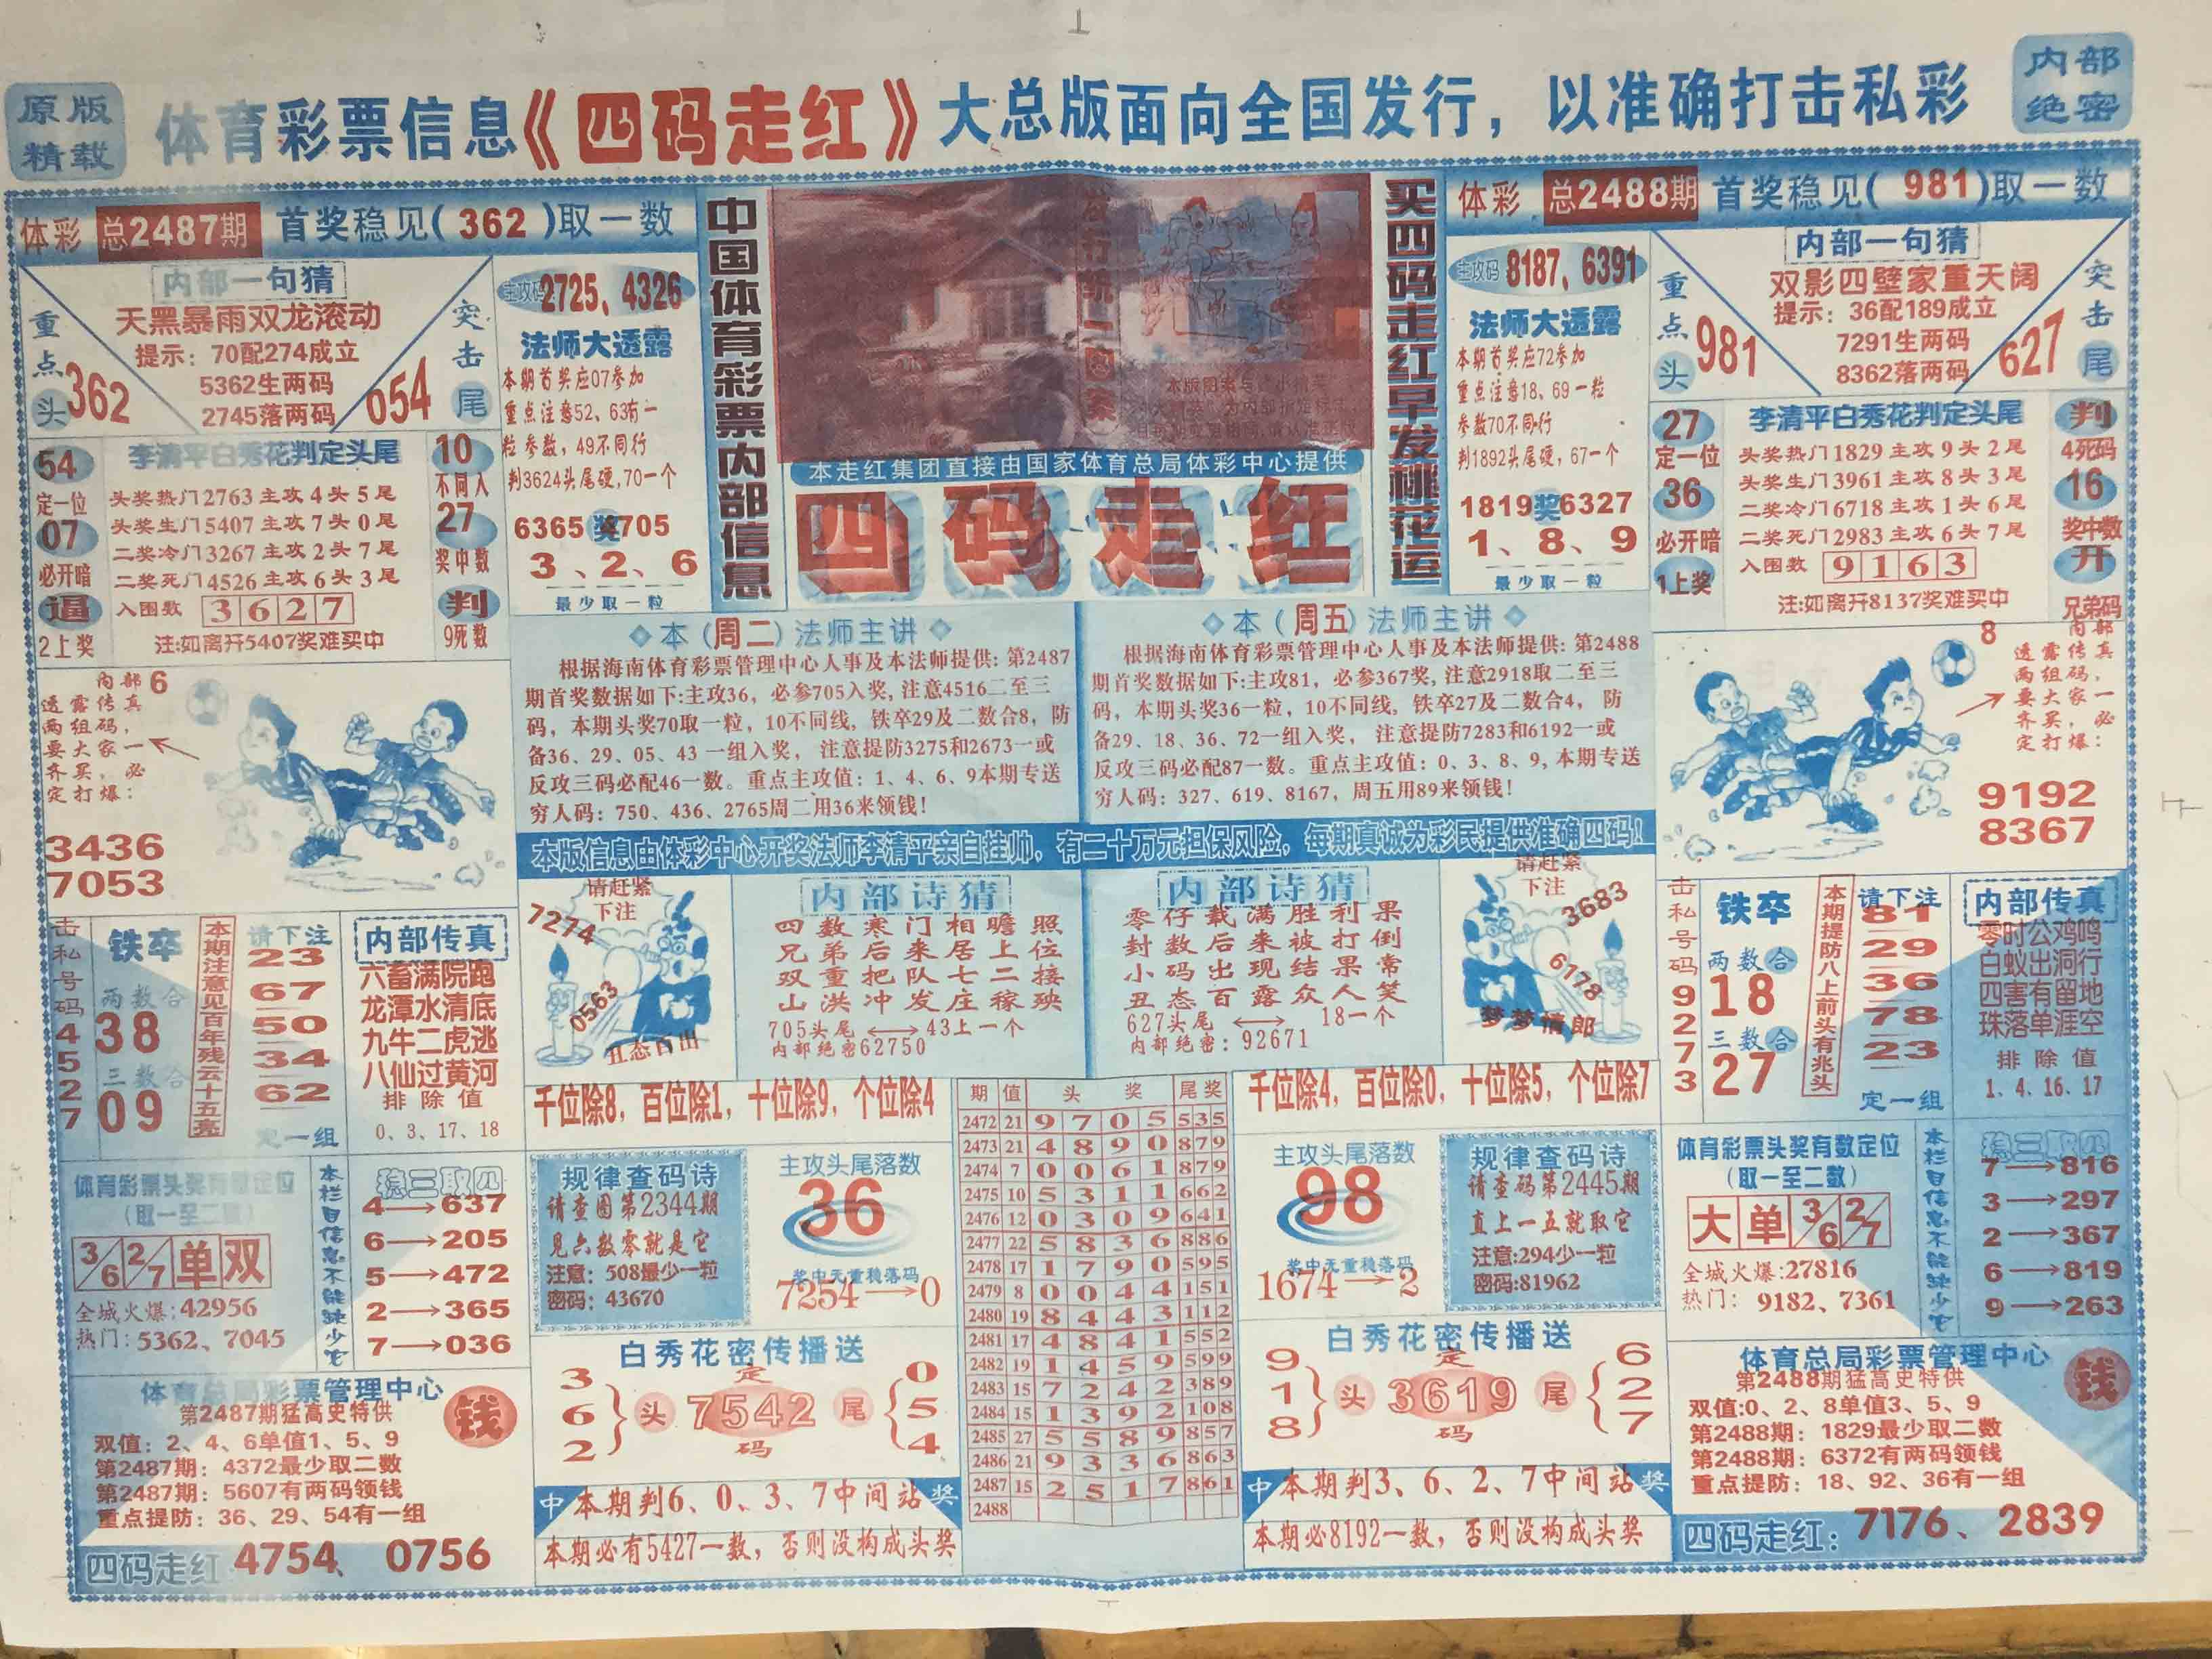 原版
精载
体育彩票信息《四码走红》大总版面向全国发行，以准确打击私彩
内部
绝密
体彩 总2487期 首奖稳见(362)取一数
内部一句猜
天黑暴雨双龙滚动
提示：70配274成立
5362生两码
2745落两码
重点头
362
突击尾
054
主攻码2725、4326
法师大透露
本期首奖应07参加
重点注意52、63有一
粒参数，49不同行
判3624头尾硬，70一个
6365奖705
3、2、6
最少取一粒
54
定一位
07
必开暗
逼
2上奖
李清平白秀花判定头尾
头奖热门2763主攻4头5尾
头奖生门5407主攻7头0尾
二奖冷门3267主攻2头7尾
二奖死门4526主攻6头3尾
入围数 3627
注:如离开5407奖难买中
10
不同入
27
奖中数
判
9死数
中国体育彩票内部信息
本走红集团直接由国家体育总局体彩中心提供
四码走红
买四码走红早发桃花运
体彩 总2488期 首奖稳见(981)取一数
主攻码8187、6391
法师大透露
本期首奖应72参加
重点注意18、69一粒
参数70不同行
判1892头尾硬，67一个
1819奖6327
1、8、9
最少取一粒
内部一句猜
双影四壁家重天阔
提示：36配189成立
7291生两码
8362落两码
重点头
981
突击尾
627
27
定一位
36
必开暗
1上奖
李清平白秀花判定头尾
头奖热门1829主攻9头2尾
头奖生门3961主攻8头3尾
二奖冷门6718主攻1头6尾
二奖死门2983主攻6头7尾
入围数 9163
注:如离开8137奖难买中
判
4死码
16
奖中数
开
兄弟码
内部 6
透露传真
两组码，
要大家一
齐买，必
定打爆：
3436
7053
本(周二)法师主讲
根据海南体育彩票管理中心人事及本法师提供: 第2487
期首奖数据如下:主攻36，必参705入奖, 注意4516二至三
码，本期头奖70取一粒，10不同线, 铁卒29及二数合8，防
备36、29、05、43 一组入奖， 注意提防3275和2673一或
反攻三码必配46一数。重点主攻值：1、4、6、9本期专送
穷人码：750、436、2765周二用36来领钱！
本(周五)法师主讲
根据海南体育彩票管理中心人事及本法师提供: 第2488
期首奖数据如下:主攻81，必参367奖, 注意2918取二至三
码，本期头奖36一粒，10不同线, 铁卒27及二数合4， 防
备29、18、36、72一组入奖， 注意提防7283和6192一或
反攻三码必配87一数。重点主攻值：0、3、8、9, 本期专送
穷人码：327、619、8167，周五用89来领钱！
8 内部
透露传真
两组码，
要大家一
齐买，必
定打爆：
9192
8367
本版信息由体彩中心开奖法师李清平亲自挂帅，有二十万元担保风险，每期真诚为彩民提供准确四码！
击私号码45277
铁卒
两数合
38
三数合
09
本期注意见百年残云十五亮
请下注
23
67
50
34
62
定一组
内部传真
六畜满院跑
龙潭水清底
九牛二虎逃
八仙过黄河
排除值
0、3、17、18
请赶紧
下注
7274
0563
丑态百出
内部诗猜
四数寒门相瞻照
兄弟后来居上位
双重把队七二接
山洪冲发庄稼殃
705头尾⟷43上一个
内部绝密62750
内部诗猜
零仔载满胜利果
封数后来被打倒
小码出现结果常
丑态百露众人笑
627头尾⟷18一个
内部绝密：92671
请赶紧
下注
3683
6178
梦梦情郎
击私号码9273
铁卒
两数合
18
三数合
27
本期提防八上前头有兆头
请下注
81
29
36
78
23
定一组
内部传真
零时公鸡鸣
白蚁出洞行
四害有留地
珠落单涯空
排除值
1、4、16、17
千位除8，百位除1，十位除9，个位除4
千位除4，百位除0，十位除5，个位除7
期 值 头奖 尾奖
2472 21 9 7 0 5 535
2473 21 4 8 9 0 879
2474 7 0 0 6 1 879
2475 10 5 3 1 1 662
2476 12 0 3 0 9 641
2477 22 5 8 3 6 886
2478 17 1 7 9 0 595
2479 8 0 0 4 4 151
2480 19 8 4 4 3 112
2481 17 4 8 4 1 552
2482 19 1 4 5 9 599
2483 15 7 2 4 2 389
2484 15 1 3 9 2 108
2485 27 5 5 8 9 857
2486 21 9 3 3 6 863
2487 15 2 5 1 7 861
2488
体育彩票头奖有数定位
(取一至二数)
3/6 2/7 单 双
全城火爆:42956
热门：5362、7045
本栏目信息不能缺少它
稳三取四
4→637
6→205
5→472
2→365
7→036
规律查码诗
请查图第2344期
见六数零就是它
注意：508最少一粒
密码：43670
主攻头尾落数
36
奖中无重稳落码
7254→0
主攻头尾落数
98
奖中无重稳落码
1674→2
规律查码诗
请查码第2445期
直上一五就取它
注意:294少一粒
密码:81962
体育彩票头奖有数定位
(取一至二数)
大 单 3/6 2/7
全城火爆:27816
热门：9182、7361
本栏目信息不能缺少它
稳三取四
7→816
3→297
2→367
6→819
9→263
体育总局彩票管理中心
第2487期猛高史特供
钱
双值：2、4、6单值1、5、9
第2487期：4372最少取二数
第2487期：5607有两码领钱
重点提防：36、29、54有一组
四码走红 4754、0756
白秀花密传播送
3
6
2
头
定
7542
码
尾
0
5
4
中 本期判6、0、3、7中间站 奖
本期必有5427一数，否则没构成头奖
白秀花密传播送
9
1
8
头
定
3619
码
尾
6
2
7
中 本期判3、6、2、7中间站 奖
本期必8192一数，否则没构成头奖
体育总局彩票管理中心
第2488期猛高史特供
钱
双值:0、2、8单值3、5、9
第2488期：1829最少取二数
第2488期：6372有两码领钱
重点提防：18、92、36有一组
四码走红：7176、2839